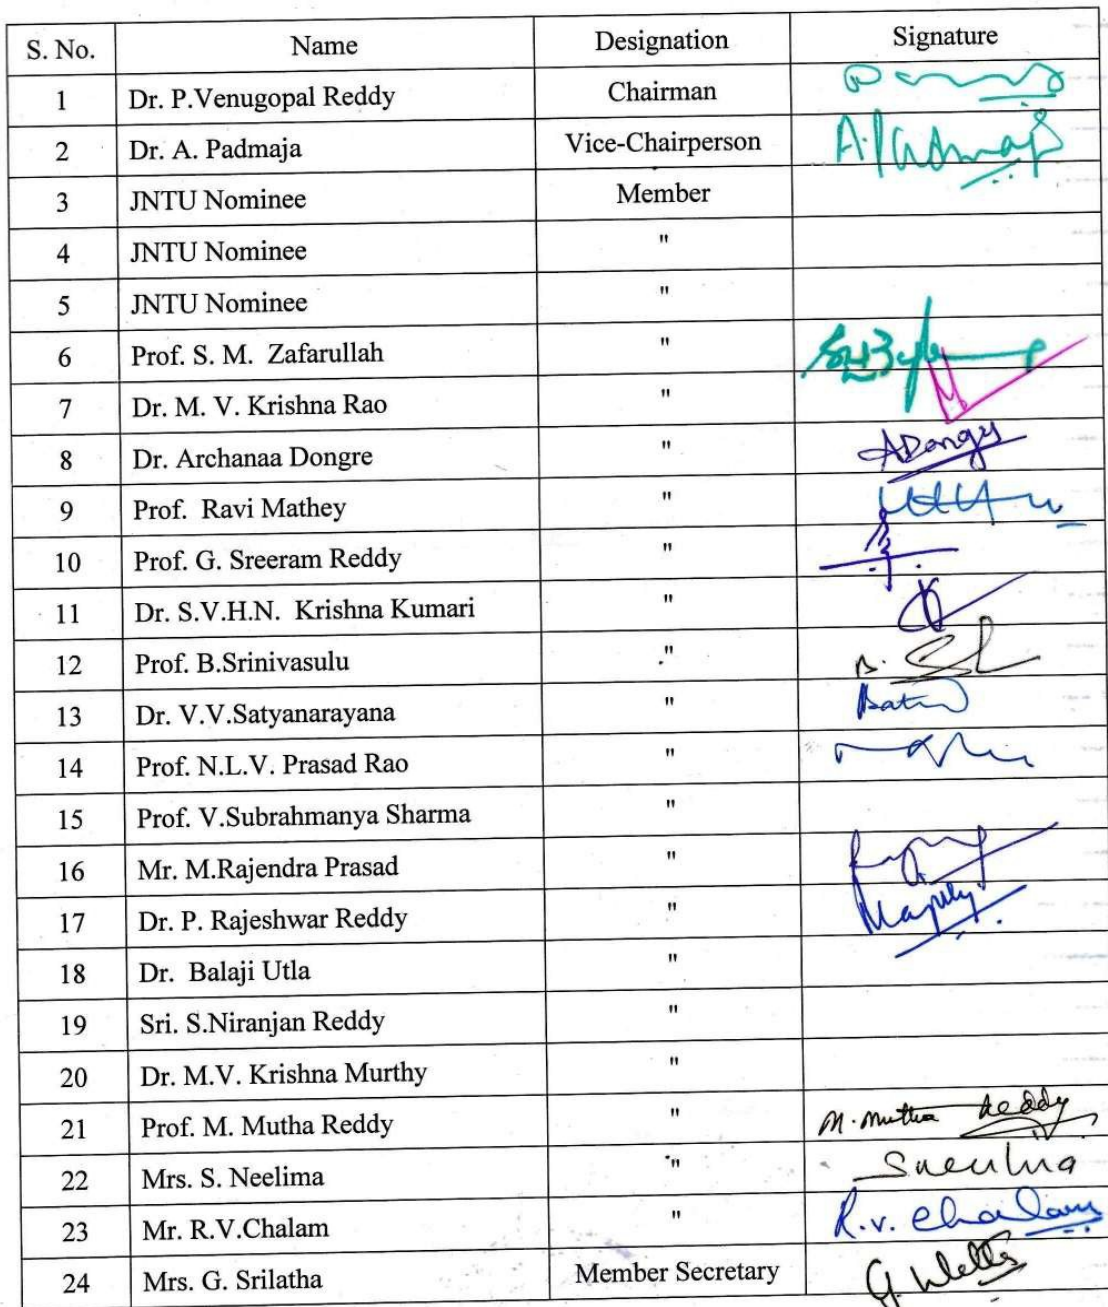 S. No. Name Designation Signature
1 Dr. P.Venugopal Reddy Chairman
2 Dr. A. Padmaja Vice-Chairperson A. Padmaja
3 JNTU Nominee Member
4 JNTU Nominee "
5 JNTU Nominee "
6 Prof. S. M. Zafarullah "
7 Dr. M. V. Krishna Rao "
8 Dr. Archanaa Dongre " ADongre
9 Prof. Ravi Mathey "
10 Prof. G. Sreeram Reddy "
11 Dr. S.V.H.N. Krishna Kumari "
12 Prof. B.Srinivasulu "
13 Dr. V.V.Satyanarayana "
14 Prof. N.L.V. Prasad Rao "
15 Prof. V.Subrahmanya Sharma "
16 Mr. M.Rajendra Prasad "
17 Dr. P. Rajeshwar Reddy "
18 Dr. Balaji Utla "
19 Sri. S.Niranjan Reddy "
20 Dr. M.V. Krishna Murthy "
21 Prof. M. Mutha Reddy " M. Mutha Reddy
22 Mrs. S. Neelima " Sneelima
23 Mr. R.V.Chalam " R.v. Chalam
24 Mrs. G. Srilatha Member Secretary